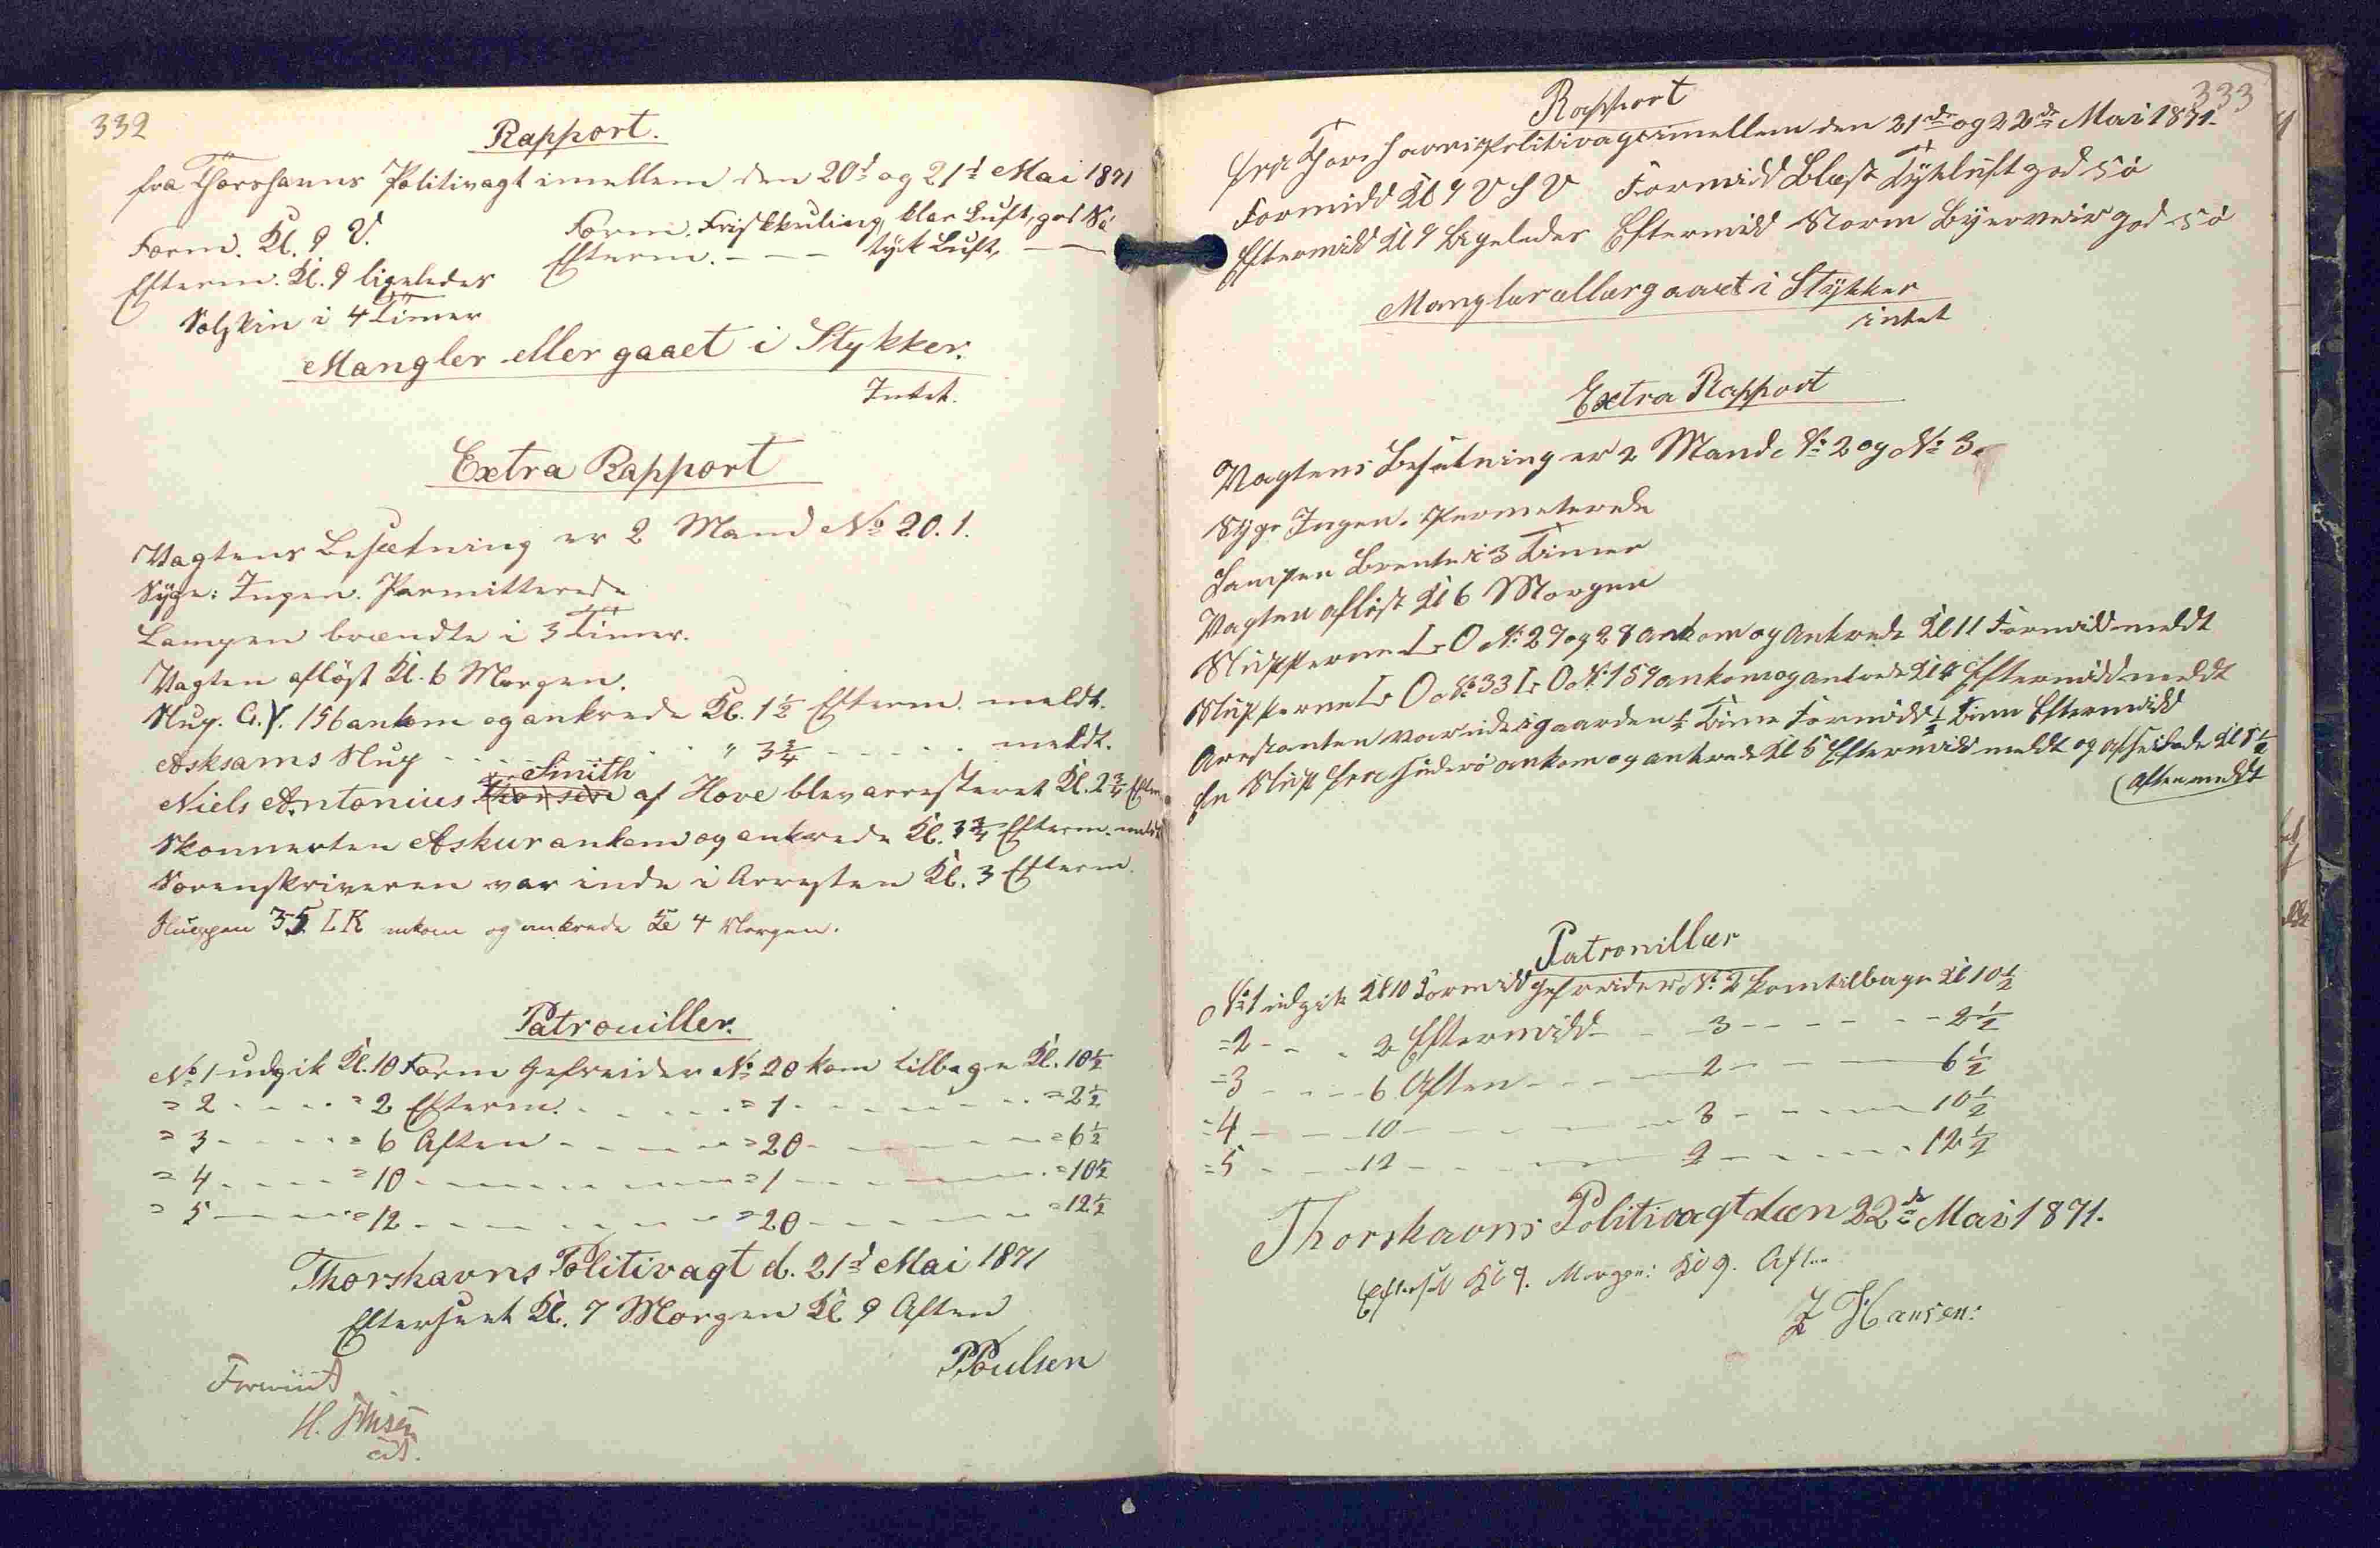 332
Rapport.
fra Thorshavns Politivagt imellem den 20d og 21d Mai 1871
Form. Kl. 9 V. Form. Friskkuling, klar Luft, god Sö
Efterm. Kl. 9 ligeledes Efterm. - - - tyk Luft, - -
Solskin i 4 Timer
Mangler eller gaaet i Stykker.
Intet.
Extra Rapport
Vagtens Besætning er 2 Mand No 20. 1.
Syge: Ingen. Permitterede
Lampen brændte i 3 Timer.
Vagten aflöst Kl. 6 Morgen.
Slup. G.V. 156 ankom og ankrede Kl. 1½ Efterm. meldt.
Asksams Slup - - - - " 3¾ - - - - meldt.
Smith
Niels Antonius Thorsen af Hove blev arresteret Kl. 2¾ Efterm.
Skonnerten Askur ankom og ankrede Kl. 3¾ Efterm. meldt
Sorenskriveren var inde i Arresten Kl. 3 Efterm.
Sluppen 35 LK ankom og ankrede Kl 4 Morgen.
Patrouiller.
No 1 udgik Kl. 10 Form Gefreider No 20 kom tilbage Kl. 10½
= 2 - - - = 2 Efterm. - - - = 1 - - - - = 2½
= 3 - - - = 6 Aften - - - = 20 - - - - = 6½
= 4 - - - = 10 - - - - = 1 - - - - = 10½
= 5 - - - = 12 - - - - = 20 - - - - = 12½
Thorshavns Politivagt d. 21d Mai 1871
Efterseet Kl. 7 Morgen Kl 9 Aften
PPoulsen
H.
333
Rapport
fra Thorshavns Politivagt imellem den 21de og 22de Mai 1871.
Formidd Kl 9 V S V Formidd Blæst Tykluft god Sö
Eftermidd Kl 9 Ligeledes Eftermidd Storm Byerveir god Sö
Mangler ellergaaet i Stykker
intet
Extra Rapport
Vagtens Besætning er 2 Mand No 2 og No 3.
Syge Ingen. Permeterede
Lampen Brente i 3 Timer
Vagten aflöst Kl 6 Morgen
Slupperne L O No 27 og 28 ankom og Ankrede Kl 11 Formidd meldt
Slupperne L O No 33 L O No 159 ankom og ankrede Kl 4 Eftermidd meldt
Arestanten var ude i gaarden ½ Time Formidd ½ Time Eftermidd
En Slup fra Suderö ankom og ankrede Kl 5 Eftermidd meldt og afseilede Kl 8½
Aften meldt
Patronillær
No 1 udgik Kl 10 Formidd gefreider No 2 kom tilbage Kl 10½
=2 - - - 2 Eftermidd - - 3 - - - - - 2½
=3 - - - 6 Aften - - - 2 - - - 6½
=4 - - - 10 - - - - 3 - - - 10½
=5 - - - 12 - - - - 2 - - - 12½
Thorshavns Politivagt den 22de Mai 1871.
Efterset Kl 7. Morgen: Kl 9. Aften
J Hansen: